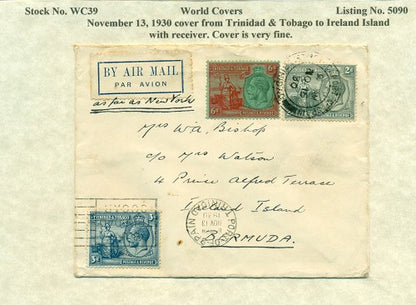 Stock No. WC39 World Covers Listing No. 5090
November 13, 1930 cover from Trinidad & Tobago to Ireland Island
with receiver. Cover is very fine.
BY AIR MAIL
PAR AVION
as far as New York
6d 6d
2/-
Mrs W.A. Bishop
c/o Mrs Watson
4 Prince Alfred Terrace
Ireland Island
BERMUDA.
TRINIDAD & TOBAGO
3d 3d
POSTAGE & REVENUE
PORT OF SPAIN
NOV 13
1930